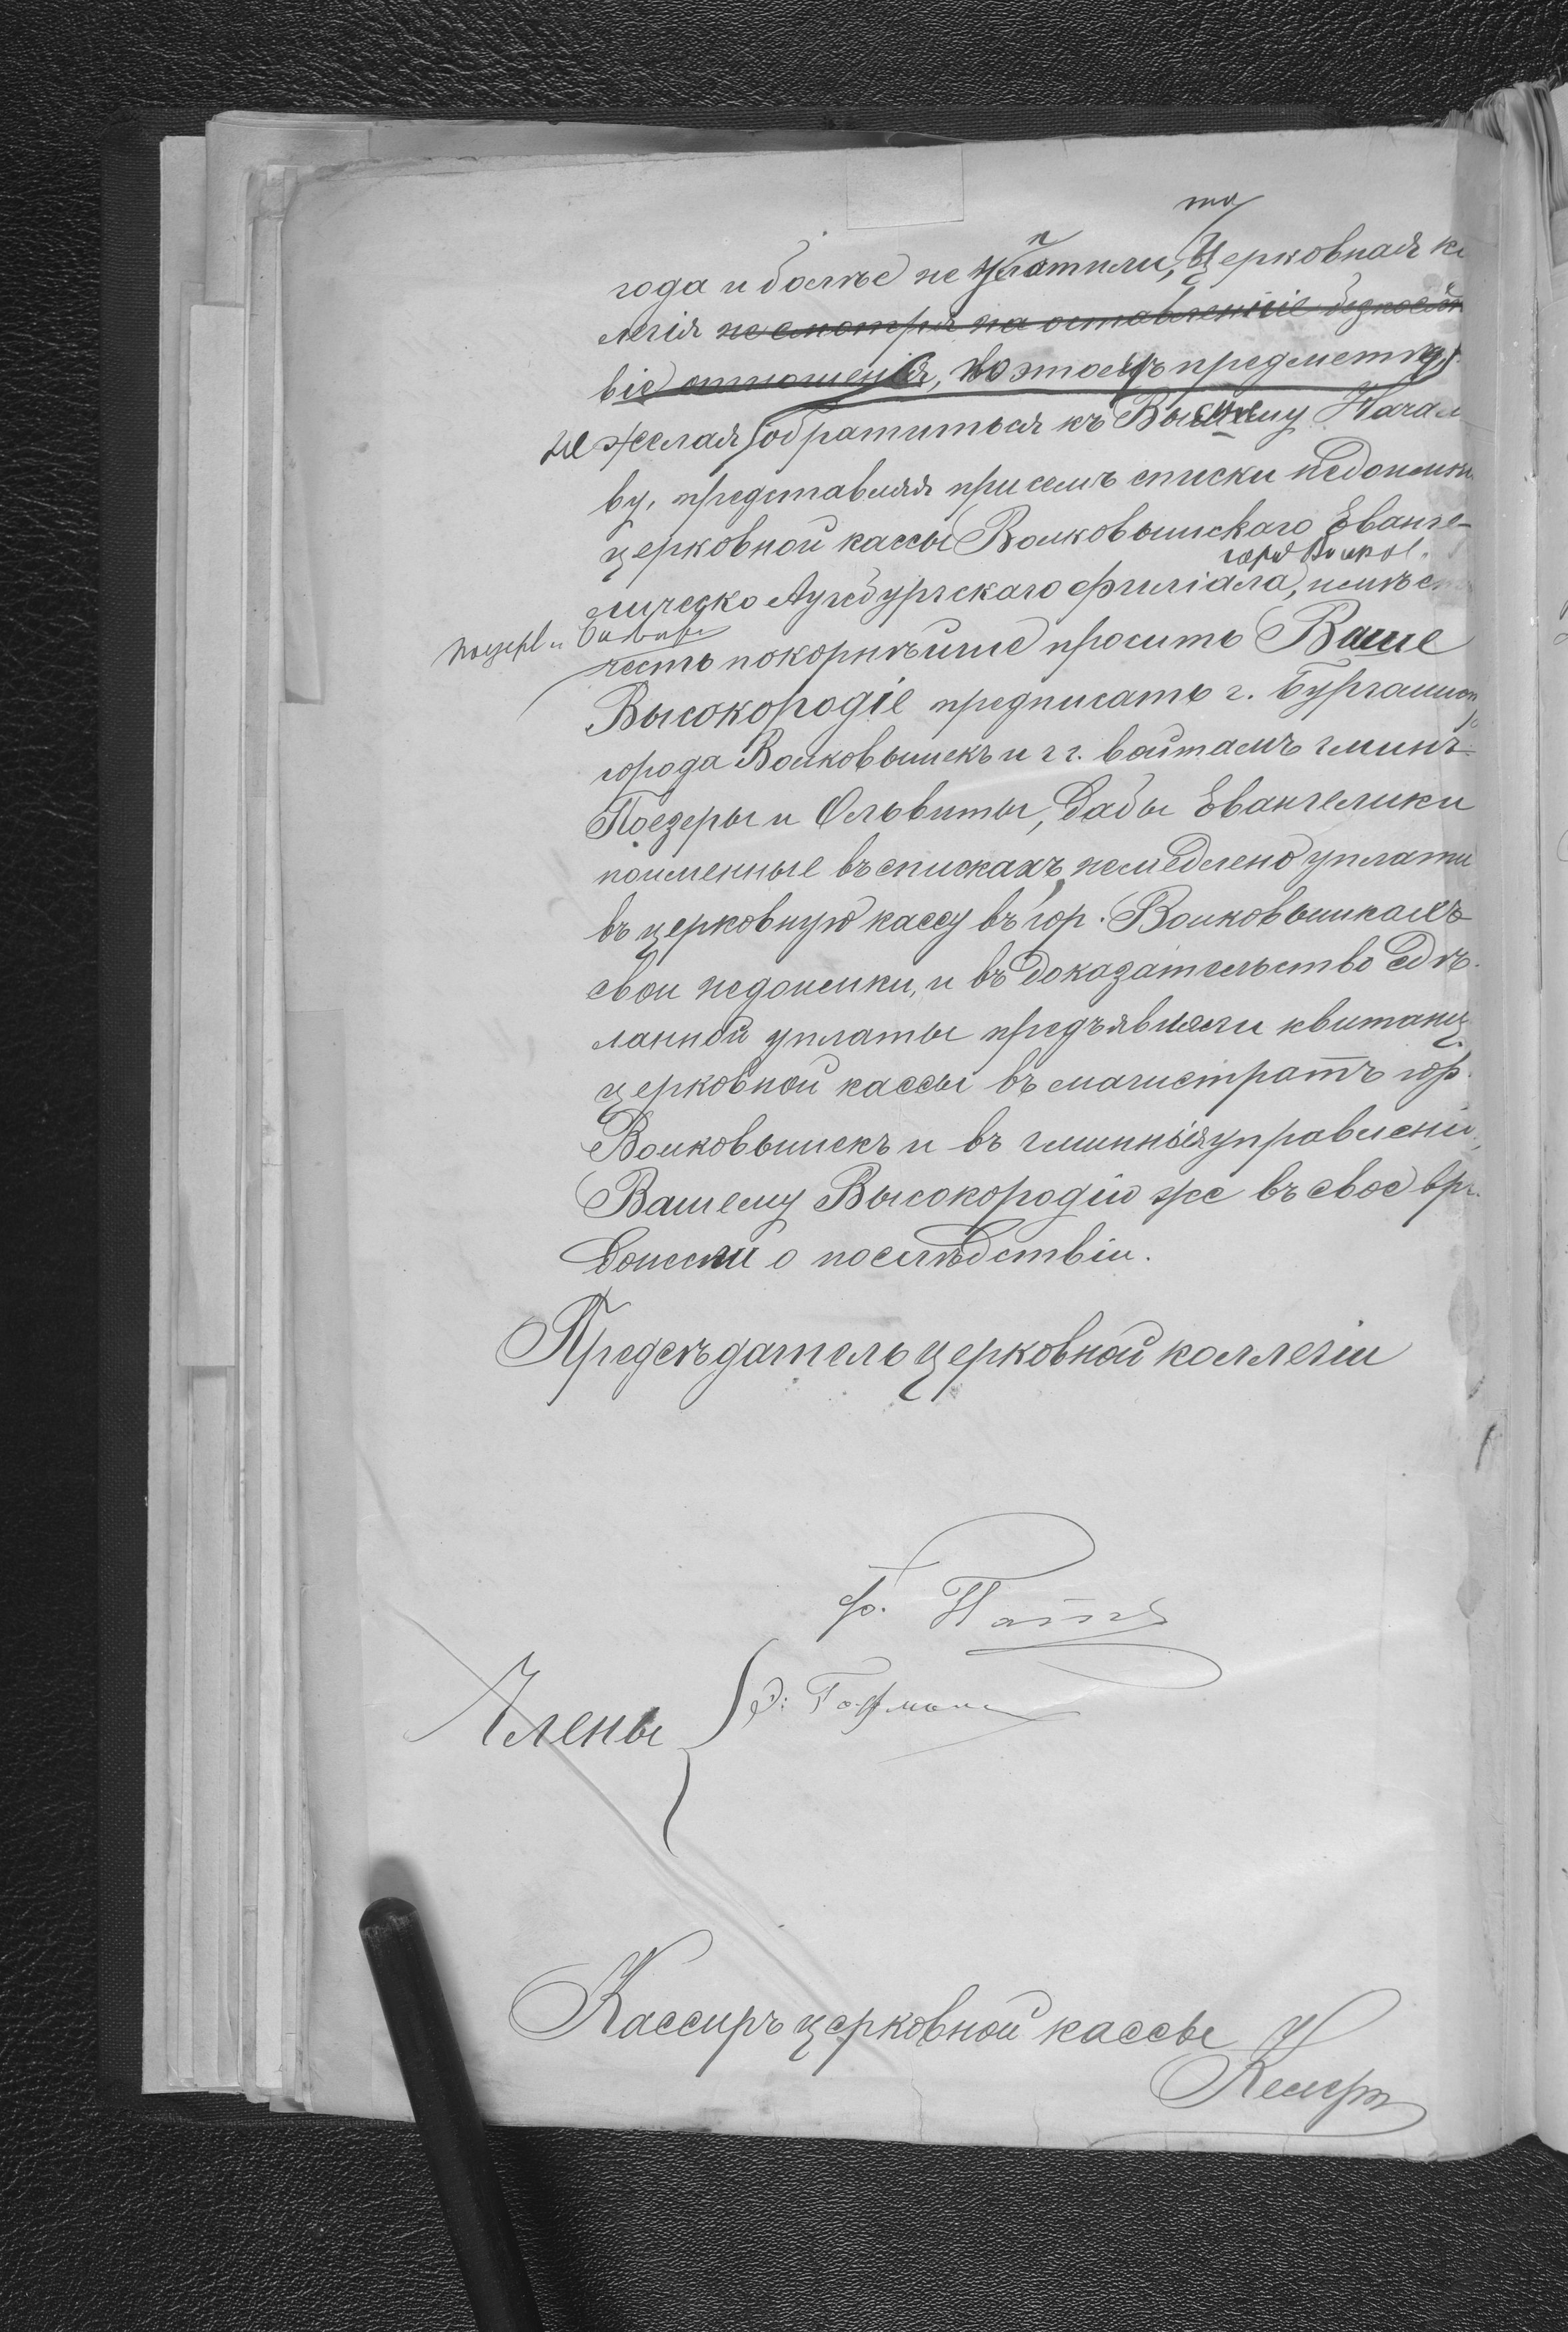 та
п
года и болѣе не уплатили, Церковная ко
легія не смотря на оставленніе безпослѣдст
віе отношенія, по этому предмету,
не желая обратиться къ Высшему Началь
ву, представляя при семъ списки недоимки
церковной кассы Волковышскаго Еванге-
гор. Волков.
лическо Аугсбургскаго филіала, имѣетъ
Поезеры и Ольвиты
честь покорнѣйше просить Ваше
Высокородіе предписать г. Бургомистру
города Волковышекъ и г г. войтамъ гминъ
Поезеры и Ольвиты, дабы Евангелики
поименные въ спискахъ немедлено уплати
въ церковную кассу въ гор. Волковышкахъ
свои недоимки, и въ доказательство сдѣ-
ланной уплаты предъявляли квитанц.
церковной кассы въ магистратъ гор.
Волковышекъ и въ гминныя управлени
Вашему Высокородію же въ свое вре.
донесли о послѣдствіи.
Предсѣдатель церковной коллегіи
Члены
Э. Гофманъ
Кассиръ церковной кассы